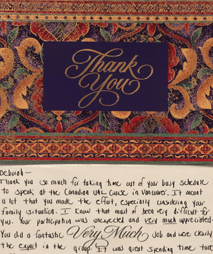 Thank
You
Deborah —
Thank you so much for taking time out of your busy schedule
to speak at the Canadian Use Case in Vancouver. It meant
a lot that you made the effort, especially considering your
family situation. I know that must of been very difficult for
you. Your participation was unexpected and very much appreciated.
You did a fantastic Very Much job and were clearly
the expert in the group. I was great spending time that